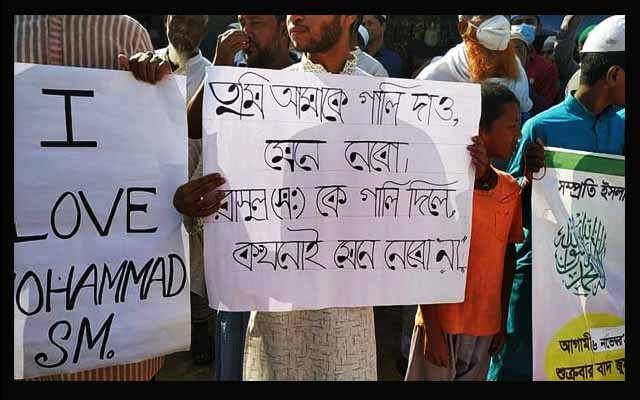 I
LOVE
MOHAMMAD
SM.
তুমি আমাকে গালি দাও,
মেনে নেবো।
রাসুল (স:) কে গালি দিলে,
কখনোই মেনে নেবো না।
সম্প্রতি
আগামী ৬ নভেম্বর
শুক্রবার বাদ